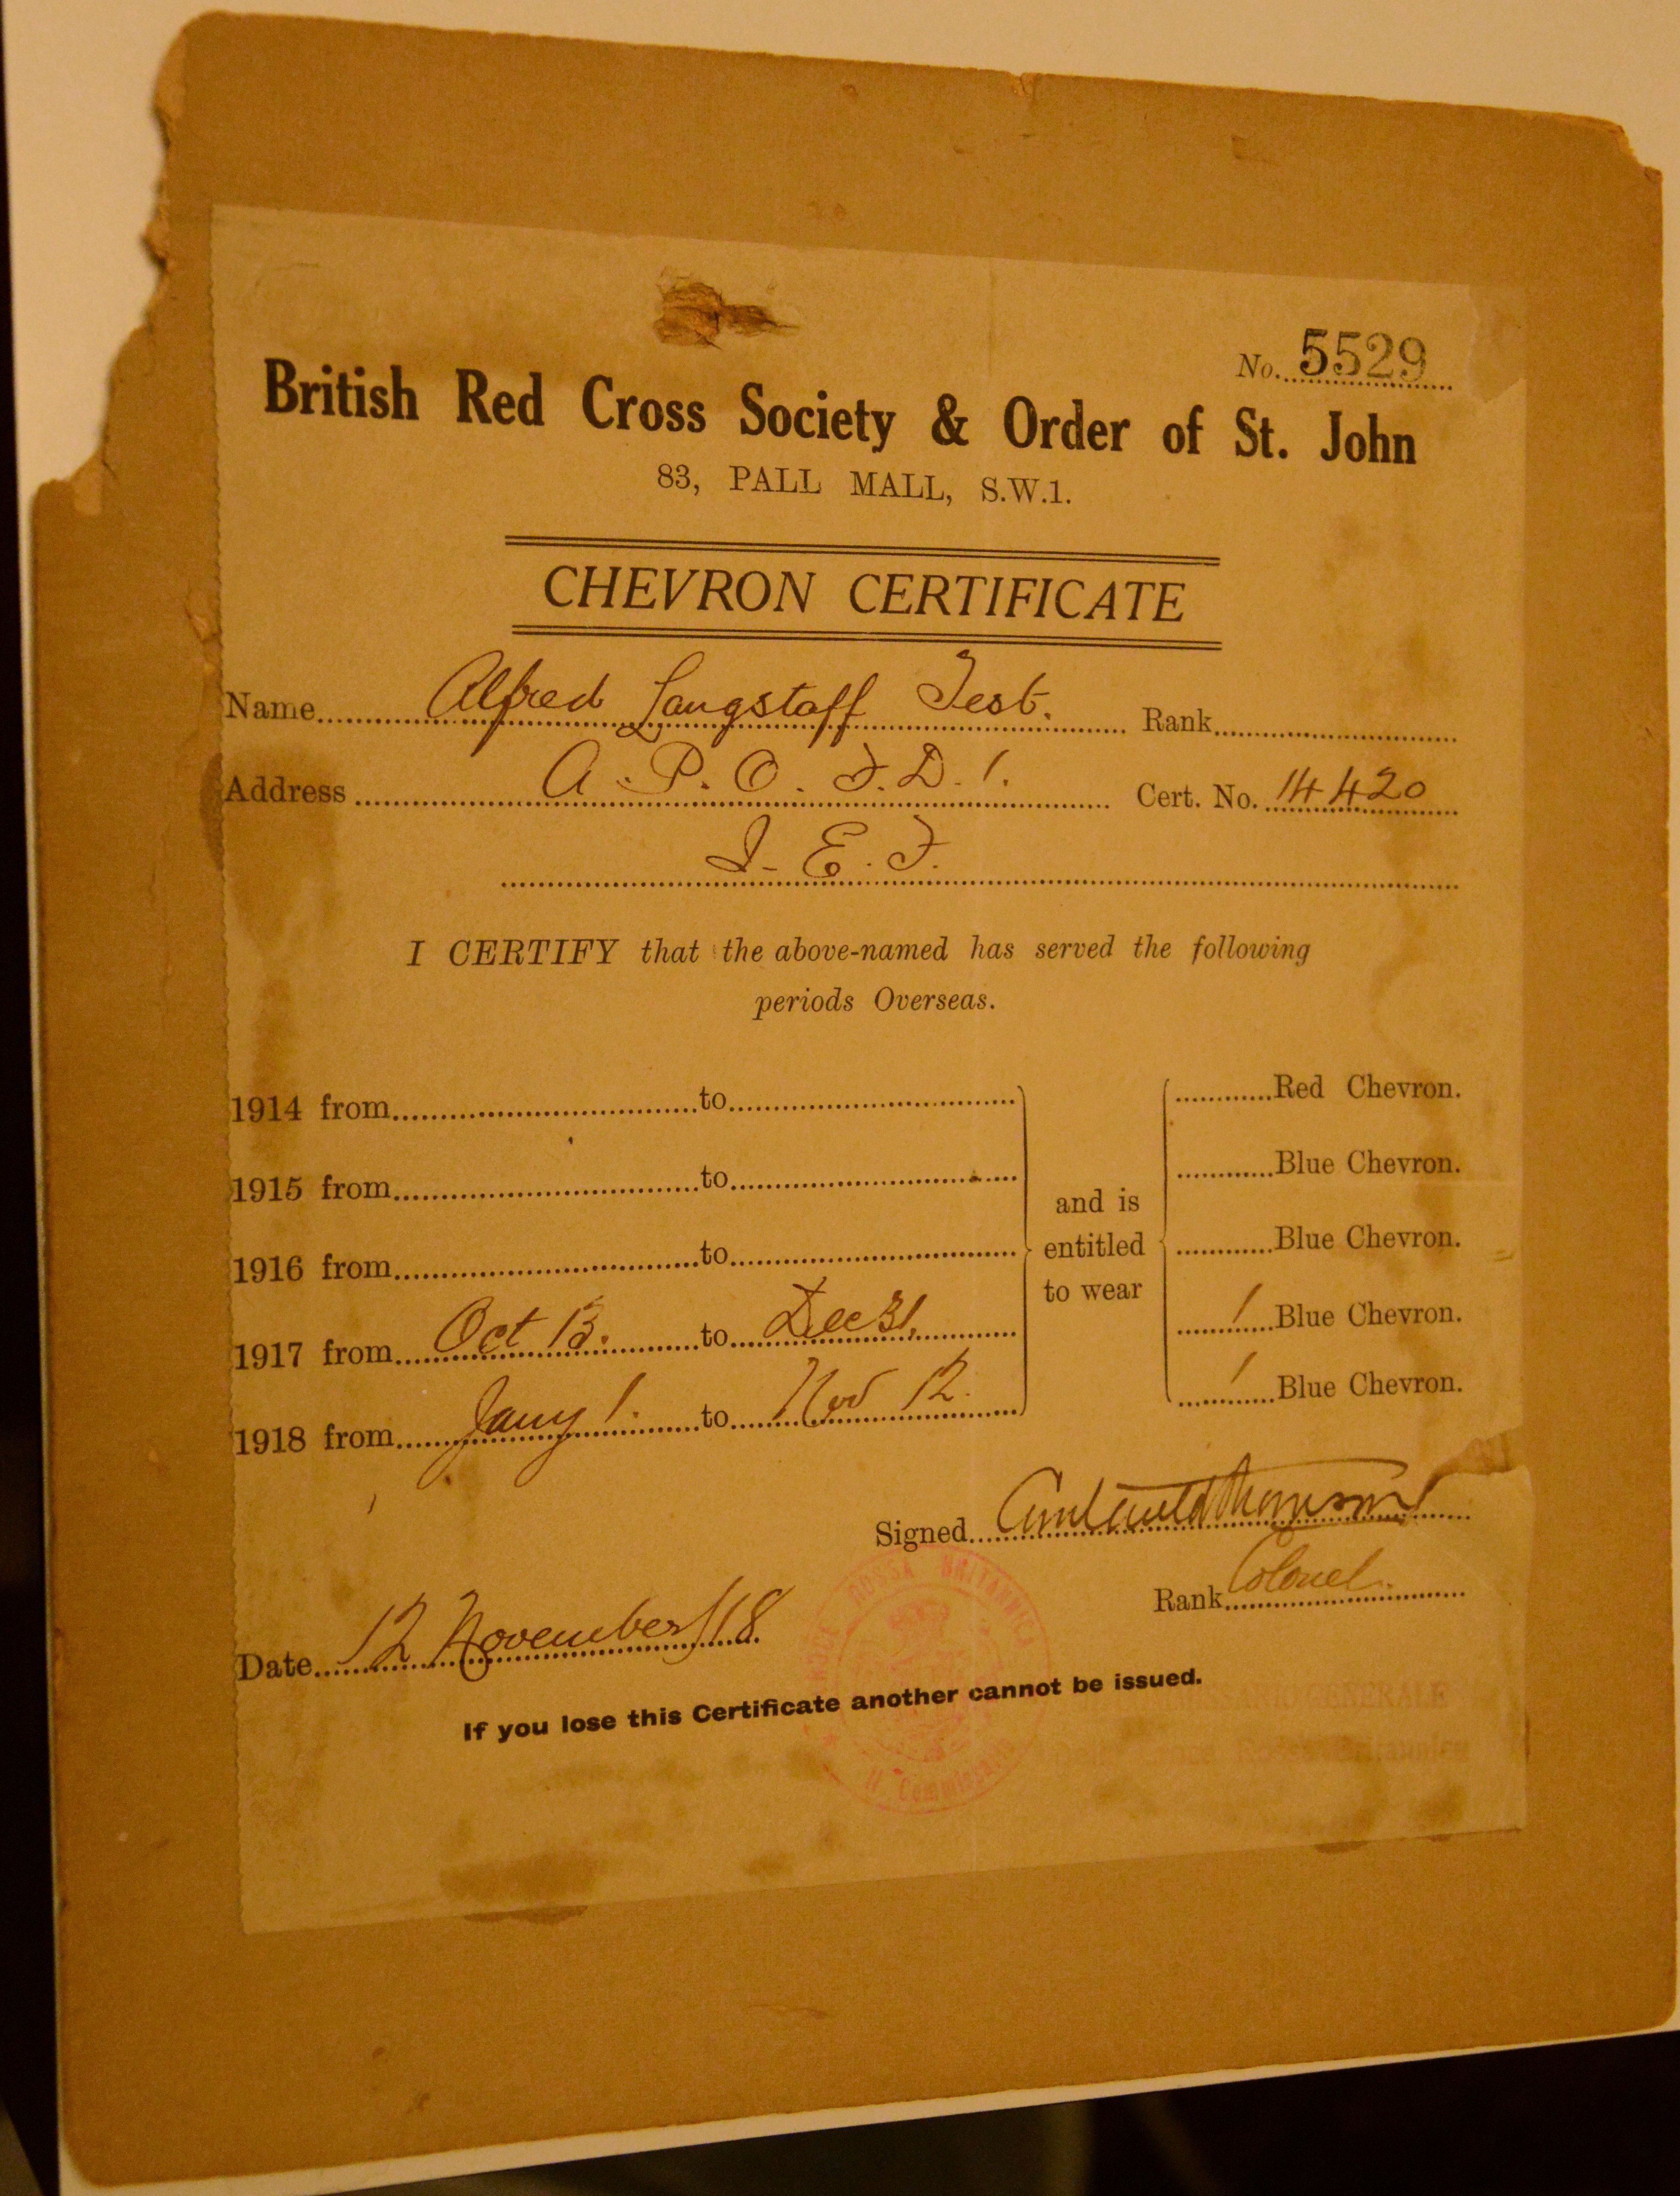 No. 5529
British Red Cross Society & Order of St. John
83, PALL MALL, S.W.1.
CHEVRON CERTIFICATE
Name Alfred Langstaff Test. Rank
Address A. P. O. F. D. 1. Cert. No. 14420
I. E. F.
I CERTIFY that the above-named has served the following
periods Overseas.
1914 from to
1915 from to
1916 from to
1917 from Oct 13. to Dec 31.
1918 from Jany 1. to Nov 12.
and is
entitled
to wear
Red Chevron.
Blue Chevron.
Blue Chevron.
1 Blue Chevron.
1 Blue Chevron.
Signed
Rank Colonel.
Date 12 November/18.
If you lose this Certificate another cannot be issued.
ROSSA BRITANNICA
Il Commissario
Rossa Britannica